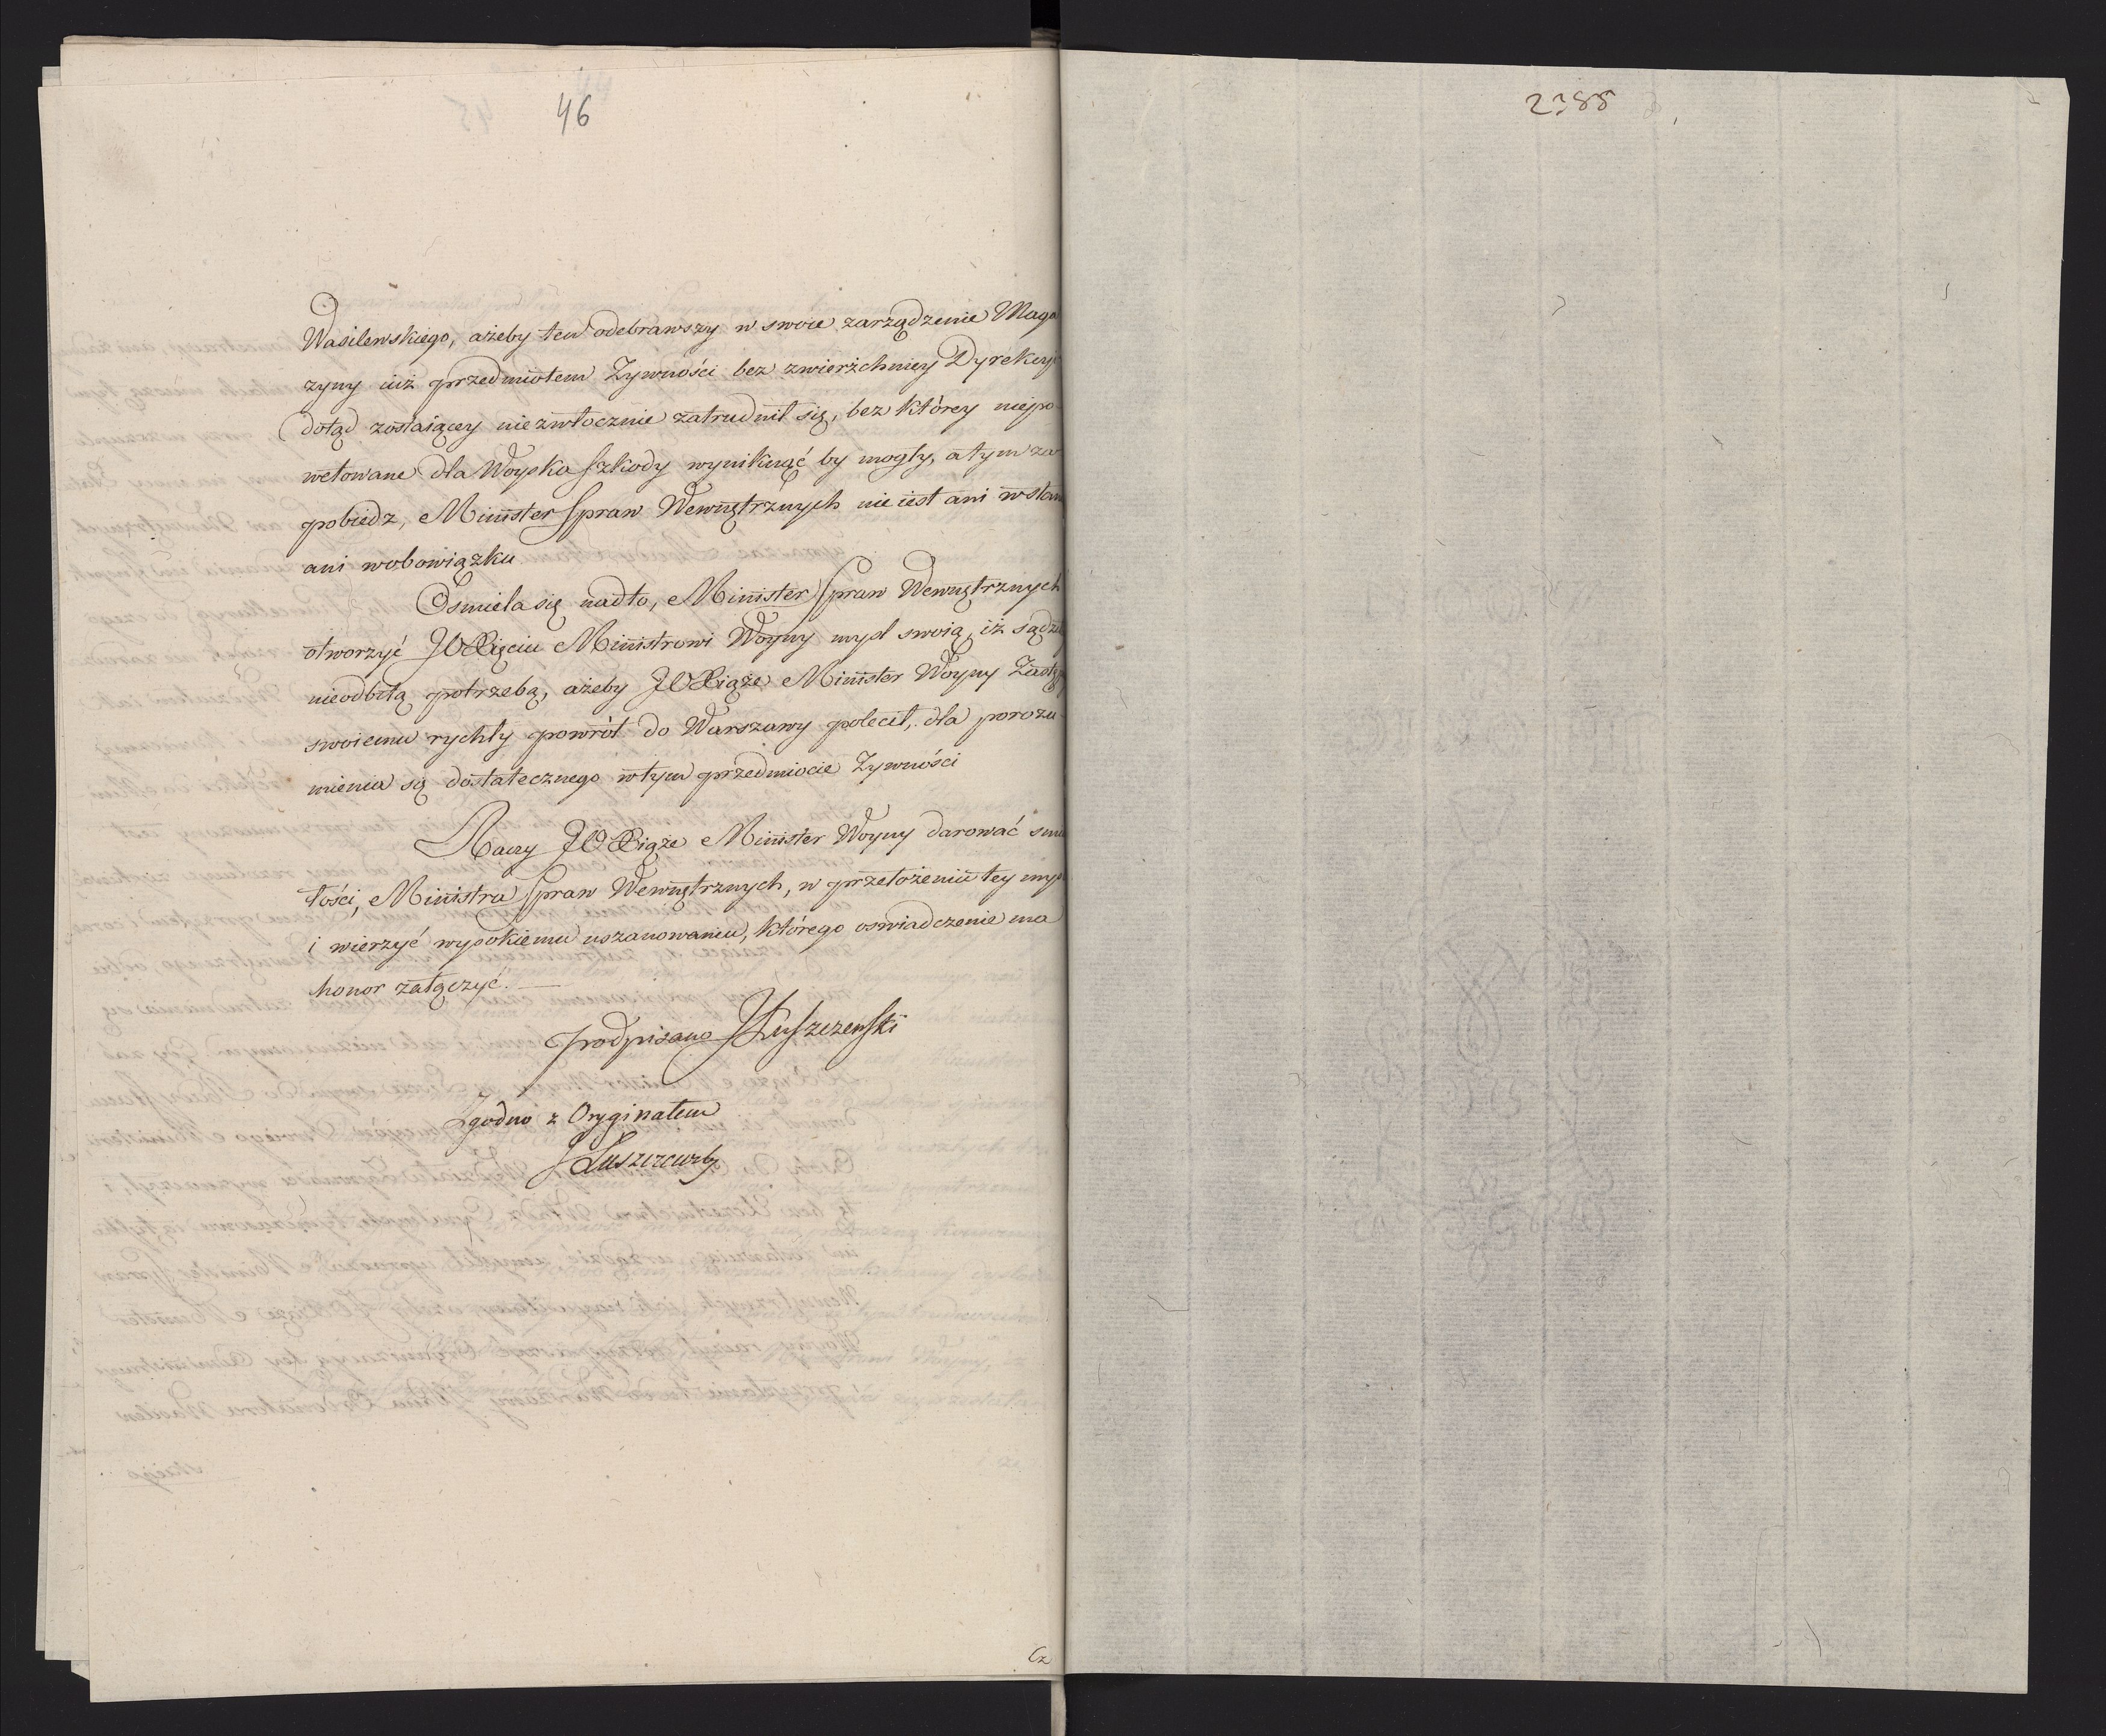 46
Wasilewskiego, ażeby ten odebrawszy w swoie zarządzenie Maga
zyny iuż przedmiotem Zywności bez zwierzchniey Dyrekcyi
dotąd zostaiący niezwłocznie zatrudnił się, bez którey niepo
wetowane dla Woyska szkody wyniknąć by mogły, a tym za
pobiedz, Minister Spraw Wewnętrznych nie iest ani w stan
ani w obowiązku
Osmiela się nadto, Minister Spraw Wewnętrznych
otworzyć JO Xięciu Ministrowi Woyny mysl swoią, iż sądzi
nieodbitą potrzebą, ażeby JO Xiąże Minister Woyny Zastę
swoiemu rychły powrót do Warszawy polecił, dla porozu
mienia się dostatecznego w tym przedmiocie Zywności
Raczy JO Xiąże Minister Woyny darować smia
łości, Ministra Spraw Wewnętrznych, w przełożeniu tey mys
i wierzyć wysokiemu uszanowaniu, którego oswiadczenie ma
honor załączyć. —
podpisano J Łuszczewski
Zgodno z Oryginałem
J Łuszczewski
Cz
2288